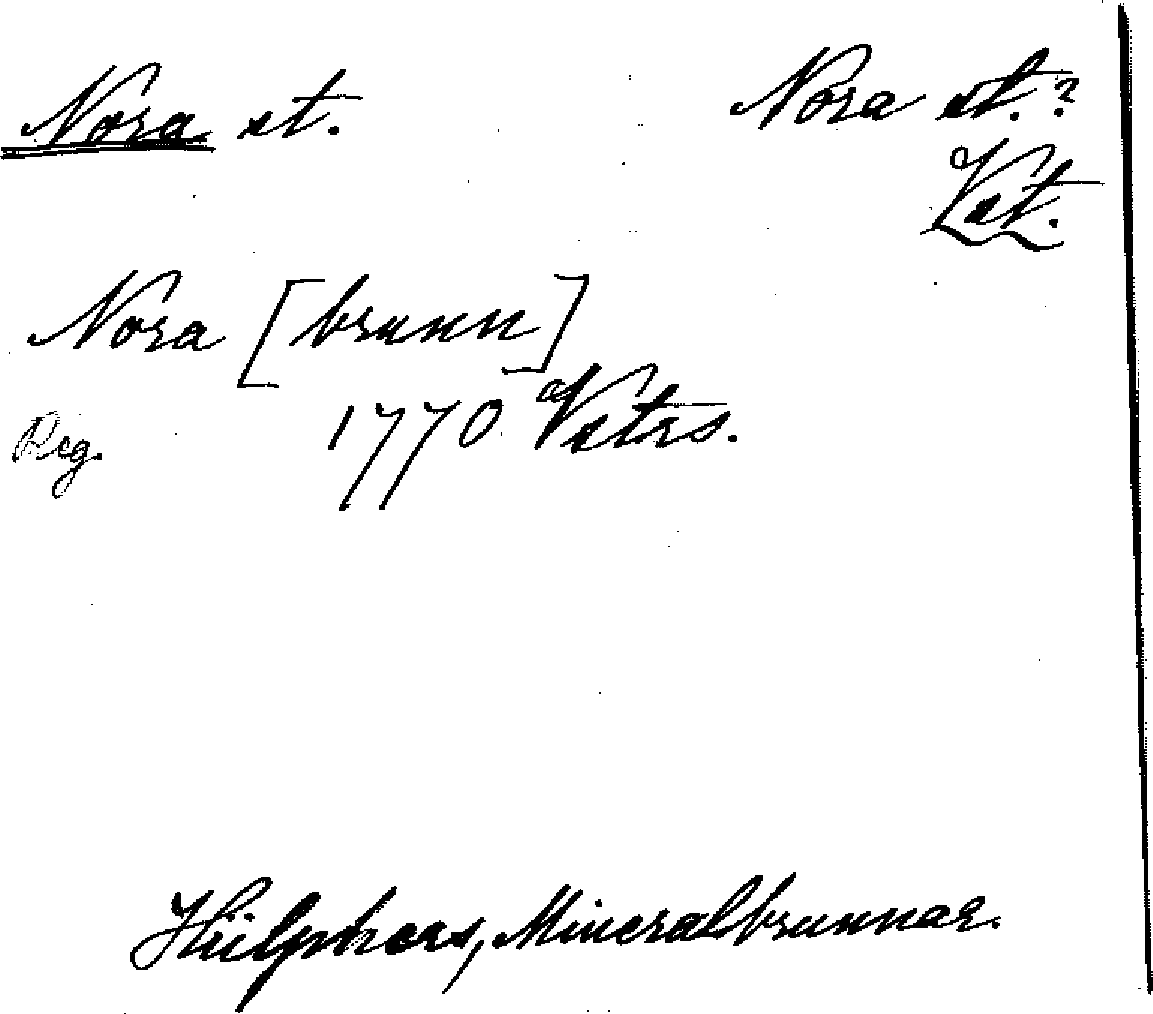 Nora st.
Nora st.?
Vst.
Nora [brunn]
Reg. 1770 Vstrs.
Hülphers, Mineralbrunnar.